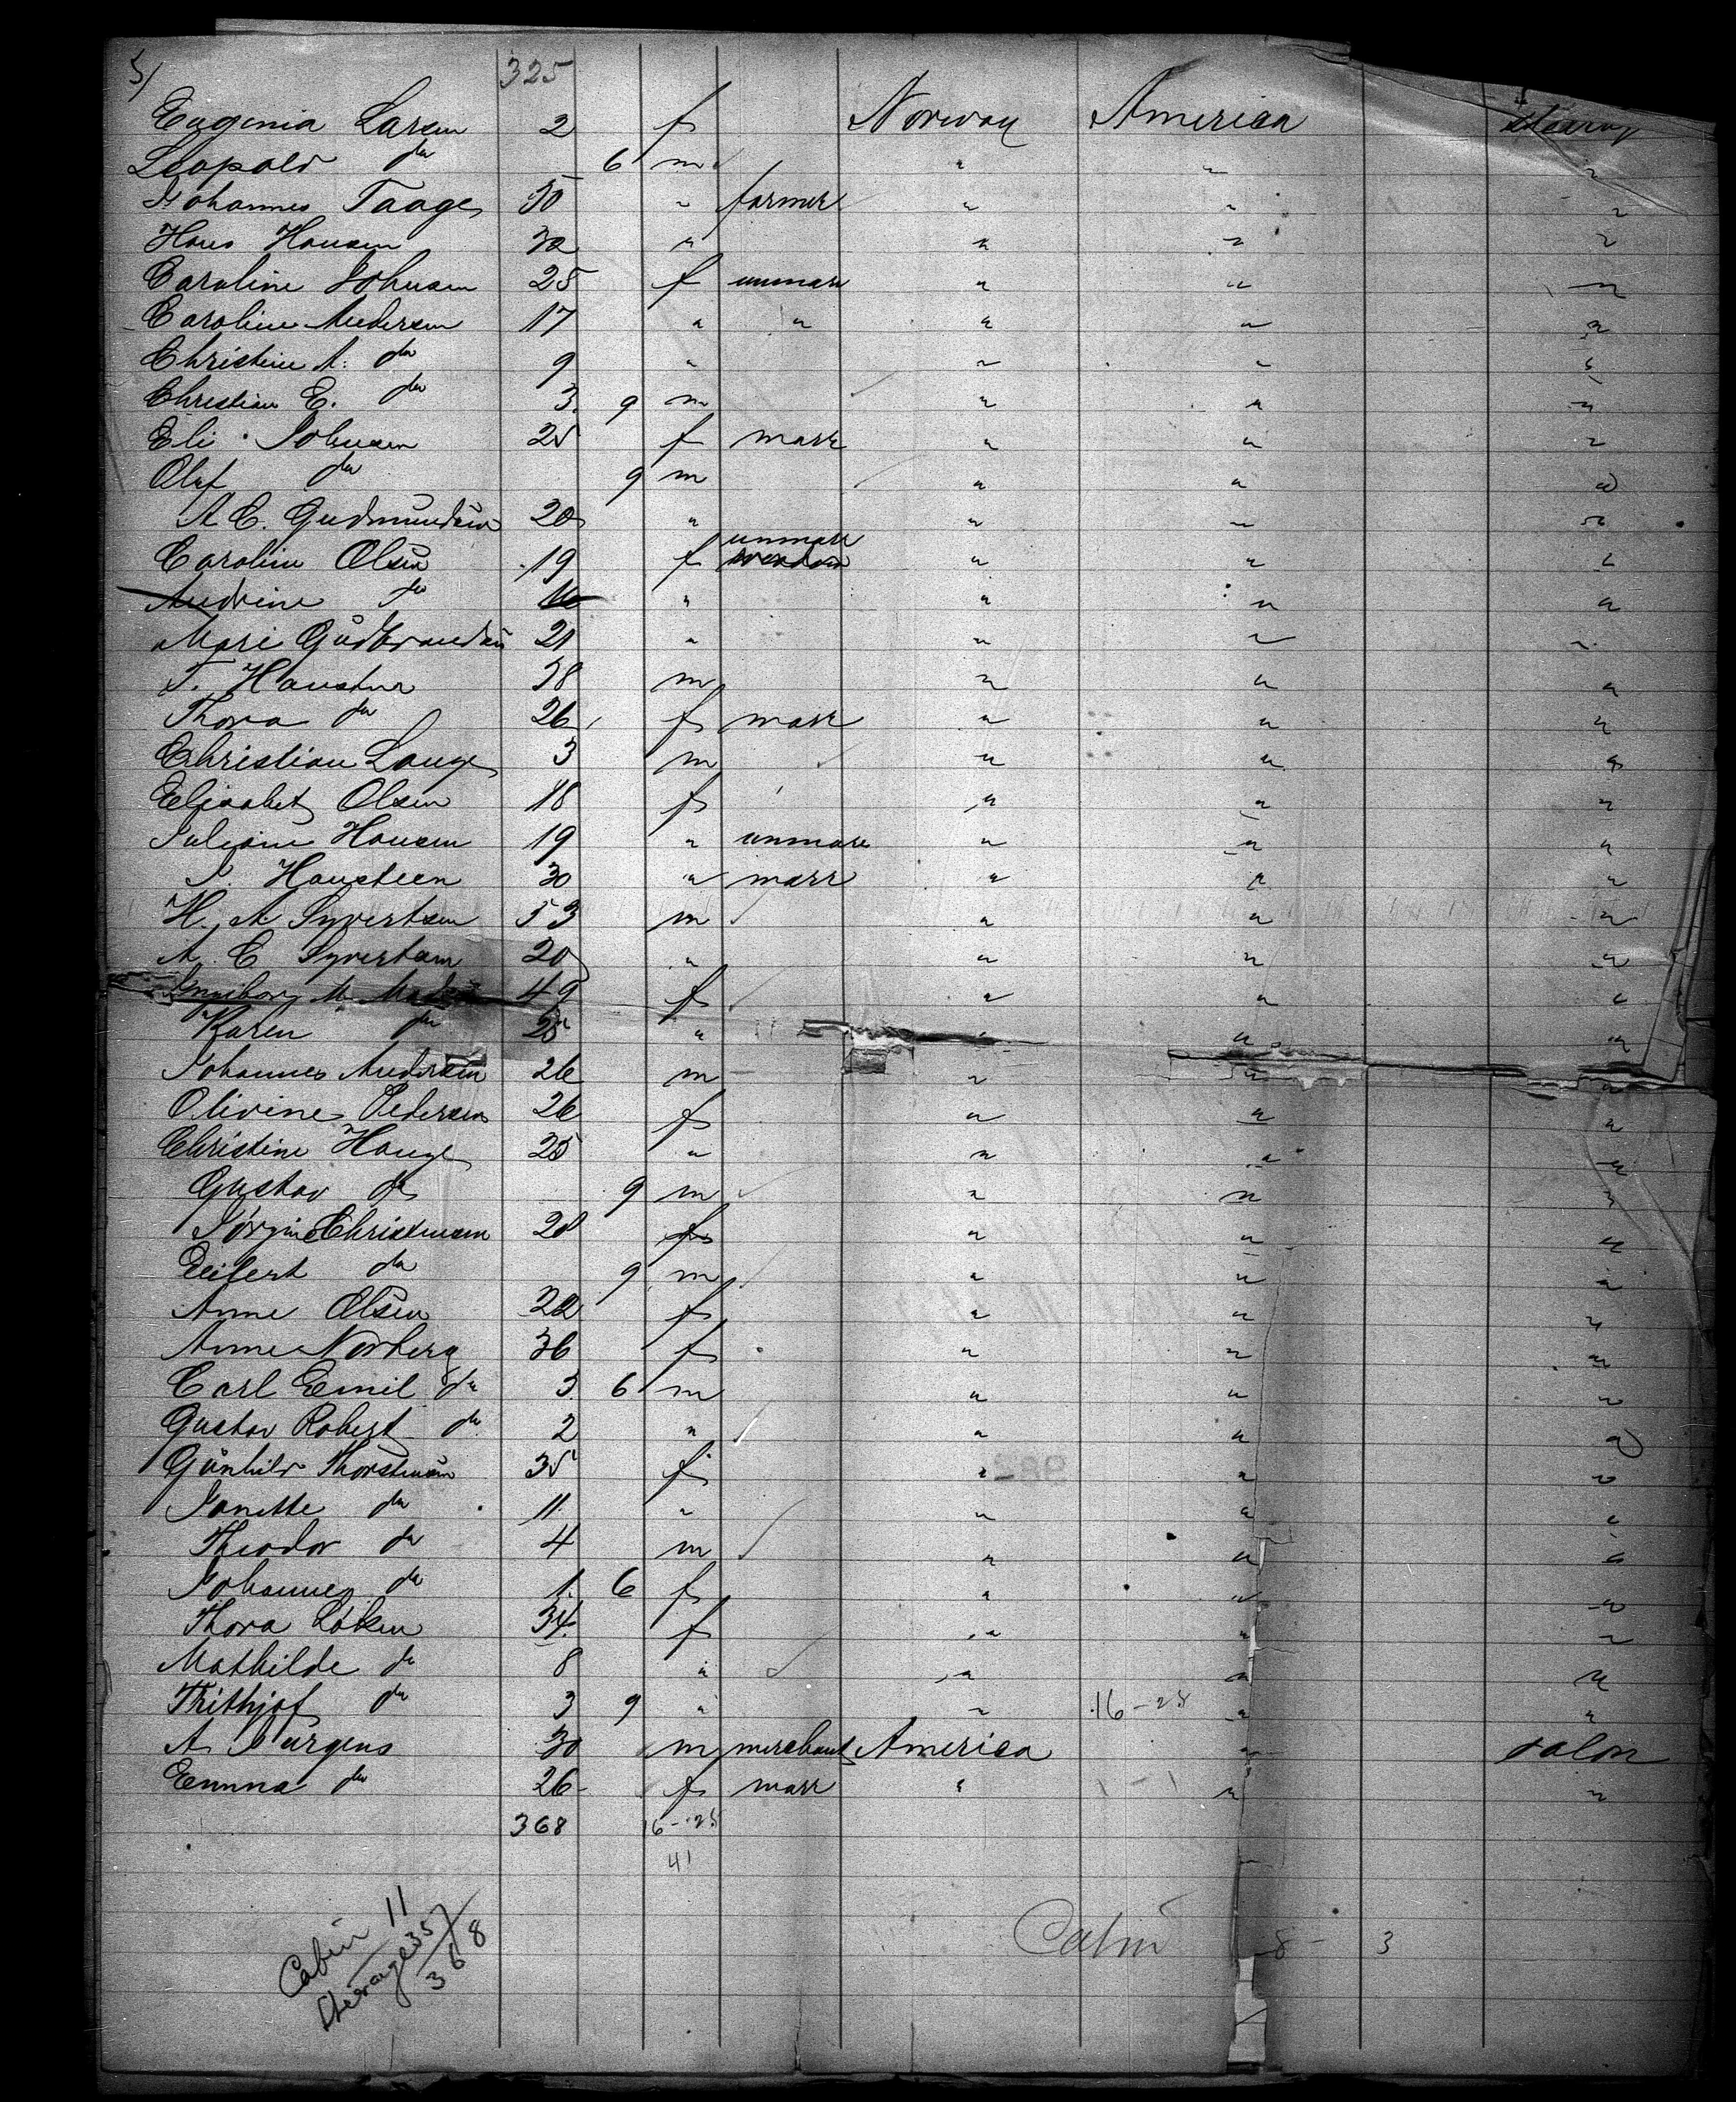 5/ 325
Eugenia Larsen 2 f Norway America steerag
Leopold do 6 m " " "
Johannes Taage 50 " farmer " " "
Hans Hansen 32 " " " "
Caroline Johnsen 25 f unmarr " " "
Caroline Andersen 17 " " " " "
Christine A. do 9 " " " "
Christian E. do 3 9 m " " "
Eli Johnsen 25 f marr " " "
Olaf do 9 m " " "
A C. Gudmundsen 20 " " " "
unmarr
Caroline Olsen 19 f " " "
Andrine do " " " "
Mari Gudbrandsen 21 " " " "
T. Hanster 38 m " " "
Thora do 26 f marr " " "
Christian Lange 3 m " " "
Elisabet Olsen 18 f " " "
Juliane Hansen 19 " unmarr " " "
Hansteen 30 " marr " " "
H. A Syvertsen 53 m " " "
A. C Syvertsen 20 " " " "
Ingeborg M. 49 f " " "
Karen do 25 " " " "
Johannes Andersen 26 m " " "
Olivine Pedersen 26 f " " "
Christine Hauge 25 " " " "
Gustav do 9 m " " "
Jørgine Christensen 28 f " " "
Eilert do 9 m " " "
Anne Olsen 22 f " " "
Anne Norberg 36 f " " "
Carl Emil do 3 6 m " " "
Gustav Robert do 2 " " " "
Gunhild Thorstensen 35 f " " "
Janette do 11 " " " "
Theodor do 4 m " " "
Johanne do 1 6 f " " "
Thora Løken 34 f " " "
Mathilde do 8 " " " "
Frithjof do 3 9 " " 16-25 " "
A Jürgens 30 m merchant America " salon
Emma do 26 f marr " " "
368 16-25
41
Cabin 11
Steerage 357
368
Cabin 8 - 3